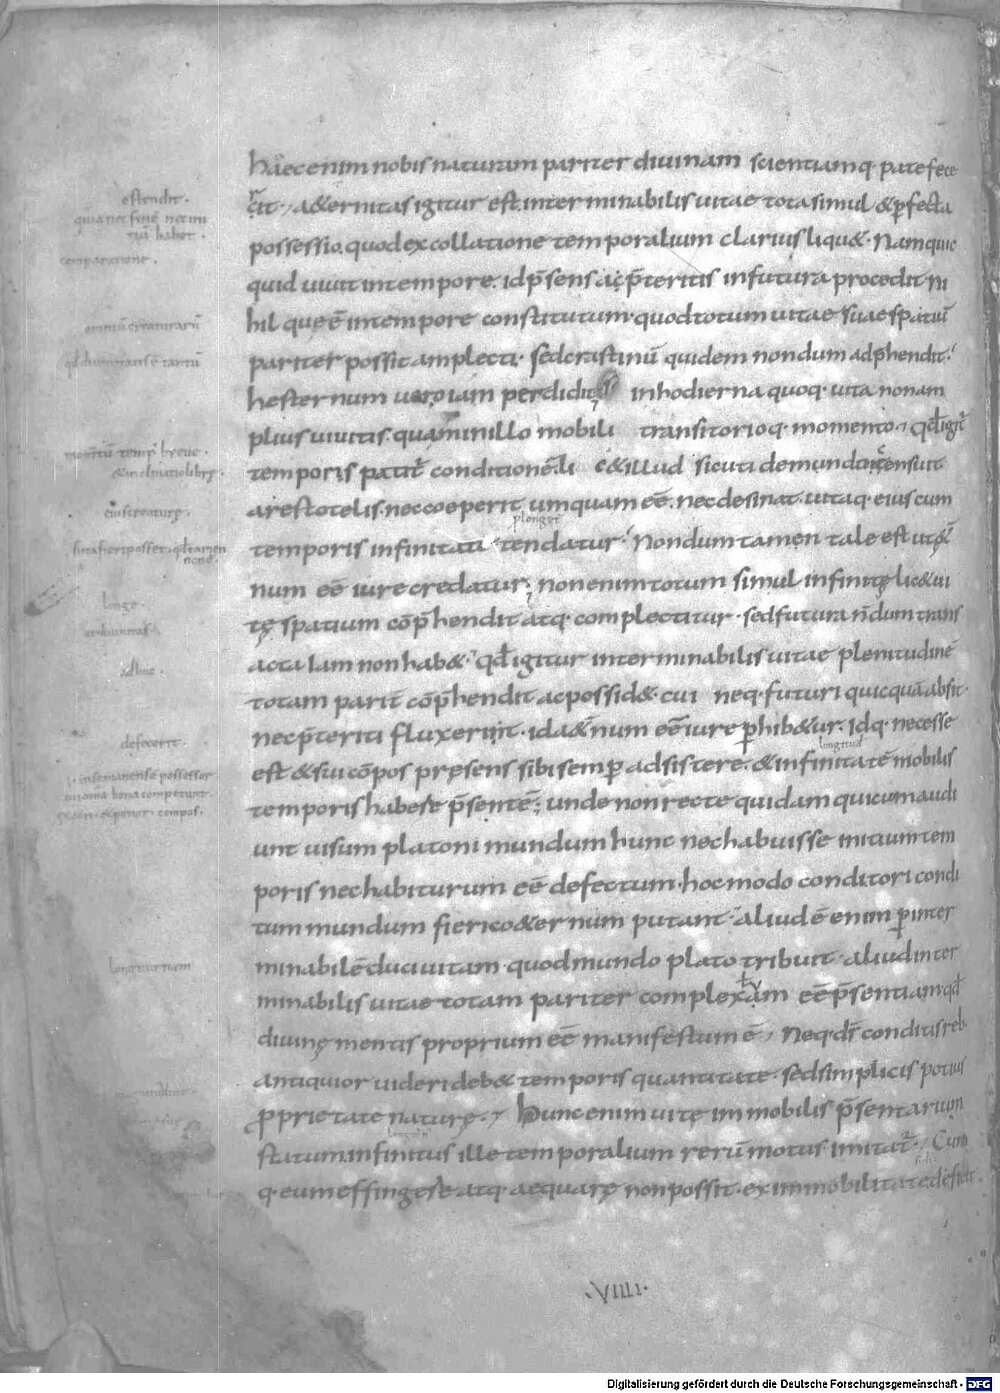 haec enim nobis naturam pariter diuinam scientiamq· patefece
rit· aeternitas igitur est interminabilis uitae tota simul & pfecta
possessio. quod ex collatione temporalium clarius liqu&· Namquic
quid uiuit in tempore. id psens a pteritis in futura procedit ni
hil que ē in tempore constitutum· quod totum uitae suae spatiū
pariter possit amplecti· sed crastinū quidem nondum adphendit·
hesternum uero iam perdidit in hodierna quoq· uita non am
plius uiuitis· quam in illo mobili transitorioq· momento· qđ igit
temporis patit conditionē· li c& illud sicuti de mundo censuit
arestotelis· nec coeperit umquam eē· nec desinat· uitaq· eius cum
temporis infinitati tendatur· Nondum tamen tale est ut &
num eē iure credatur; non enim totum simul infinitę lic& ui
tę spatium cōphendit atq· complectitur· sed futura ndum trans
acta iam non hab&· qđ igitur interminabilis uitae plenitudinē
totam parit cōphendit ac possid&· cui neq· futuri quicquā absit·
nec pteriti fluxerit· id a&num eē iure phib&ur· Idq· necesse
longitud
est & sui cōpos pręsens sibi semp adsistere· & infinitatē mobilis
temporis habere psentē; unde non recte quidam qui cum audi
unt uisum platoni mundum hunc nec habuisse initium tem
poris nec habiturum eē defectum· hoc modo conditori condi
tum mundum fieri co&ernum putant· aliud ē enim p inter
minabilē duci uitam· quod mundo plato tribuit· aliud inter
minabilis uitae totam pariter complexam eē psentiam qđ
diuinę mentis proprium eē manifestum ē· Neq· ds conditis reb
antiquior uideri deb& temporis quantitate· sed simplicis potius
pprietate naturę· hunc enim uitę immobilis psentarium
statum infinitus ille temporalium rerū motus imitat· Cum
q· eum effingere atq· aequarę non possit· ex immobilitate deficit·
ostendit·
quia nec finē nec ini
tiū habet·
comparatione·
omniū creaturarū
eius creaturę·
longe·
defecerit·
·VIIII·
Digitalisierung gefördert durch die Deutsche Forschungsgemeinschaft - DFG